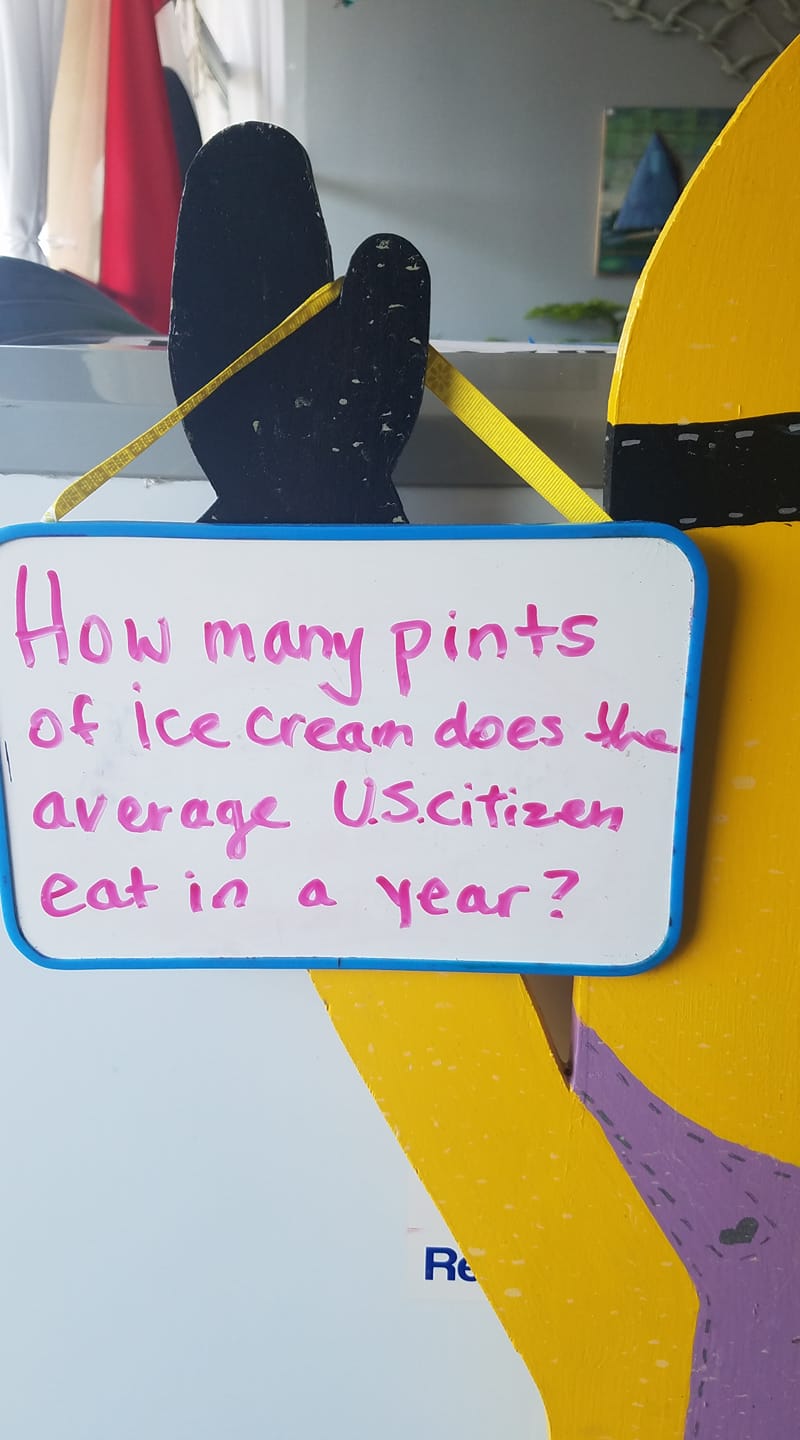 How many pints
of ice cream does the
average U.S. citizen
eat in a year?
Re